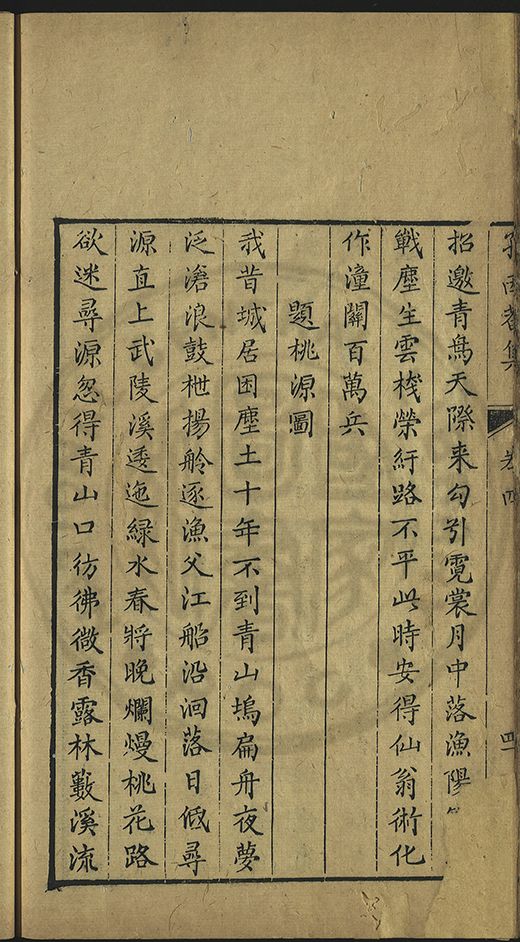 集 卷四 四
招邀青鳥天際来勾引霓裳月中落漁陽
戰塵生雲棧榮紆路不平此時安得仙翁術化
作潼關百萬兵
題桃源圖
我昔城居困塵土十年不到青山塢扁舟夜夢
泛滄浪鼓枻揚舲逐漁父江船沿洄落日低尋
源直上武陵溪逶迤綠水春將晚爛熳桃花路
欲迷尋源忽得青山口彷彿微香露林藪溪流